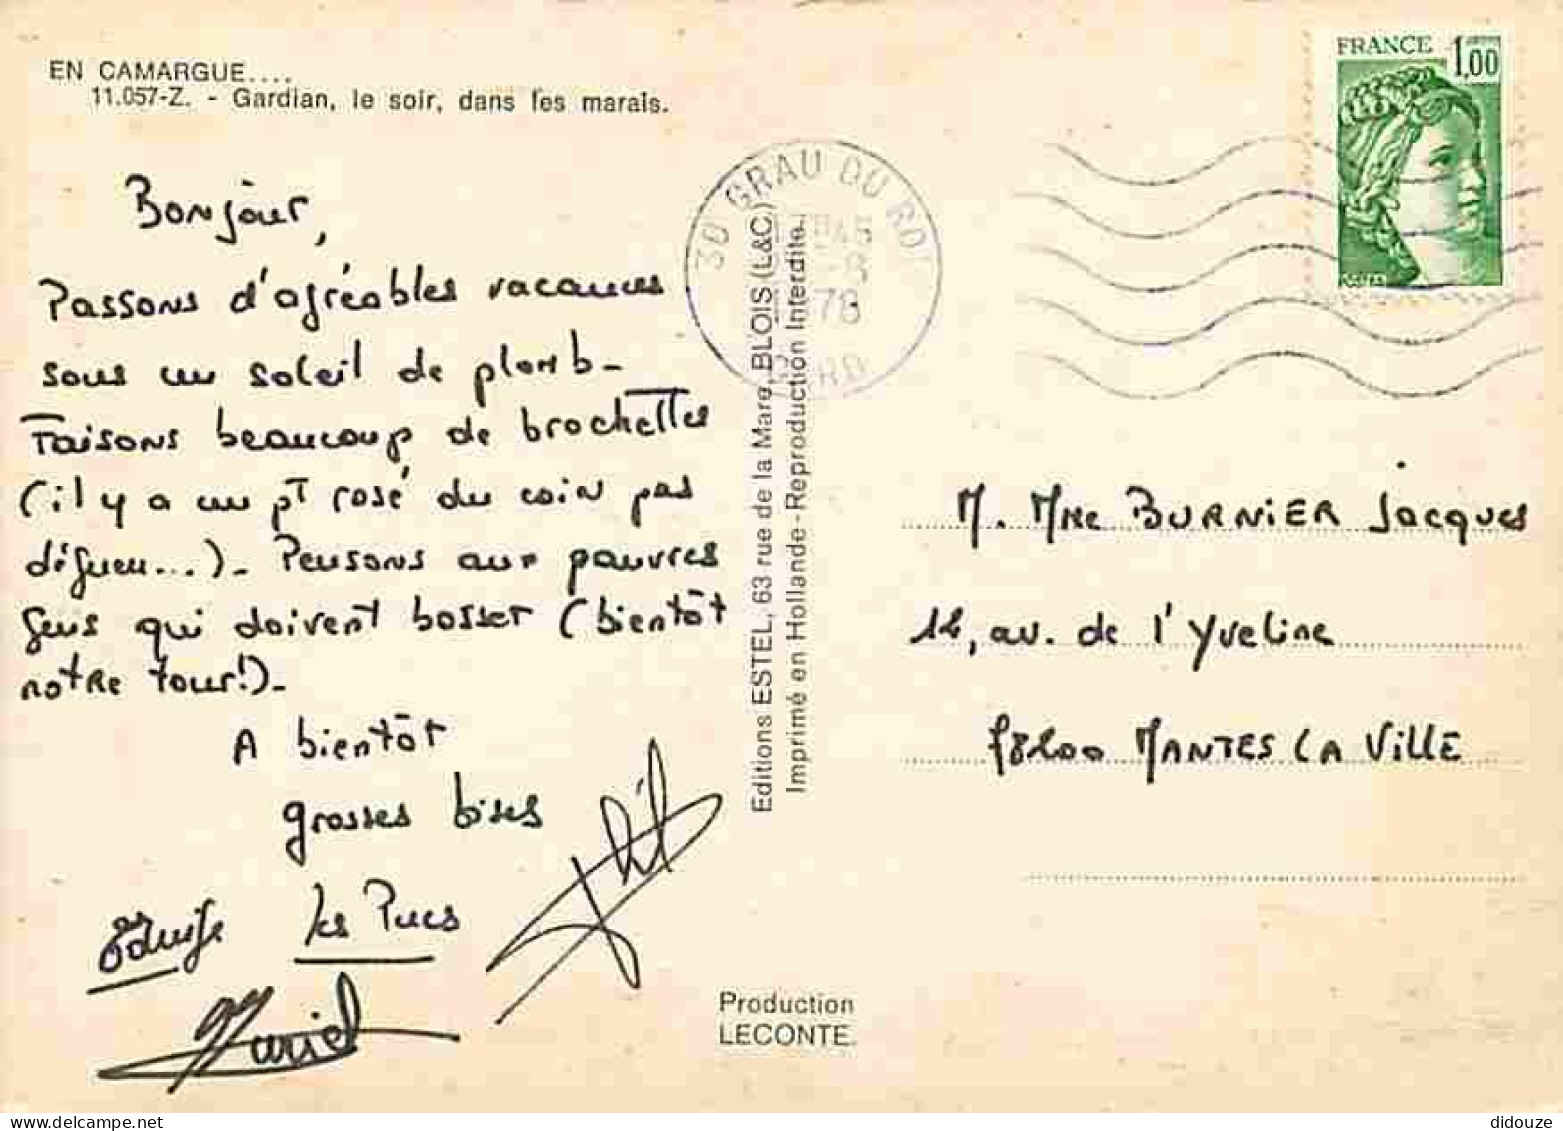 EN CAMARGUE....
11.057-Z. - Gardian, le soir, dans les marais.
Bonjour,
Passons d'agréables vacances
sous un soleil de plomb-
Faisons beaucoup de brochettes
(il y a un pt rosé du coin pas
dégueu...)- Pensons aux pauvres
gens qui doivent bosser (bientôt
notre tour!)-
A bientôt
grosses bises
Les Puces
Phil
Muriel
Editions ESTEL, 63 rue de la Mare, BLOIS (L&C)
Imprimé en Hollande-Reproduction Interdite.
Production
LECONTE.
30 GRAU DU ROI
78
GARD
FRANCE 1,00
M. Mme BURNIER Jacques
14, av. de l'Yveline
78200 MANTES LA VILLE
didouze